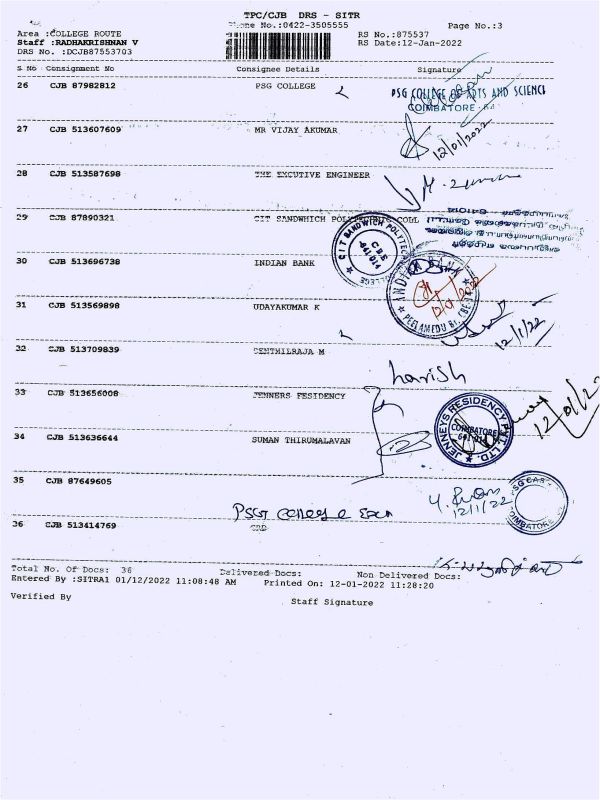 TPC/CJB DRS - SITR
Phone No.:0422-3505555
Page No.:3
Area :COLLEGE ROUTE
Staff :RADHAKRISHNAN V
DRS No. :DCJB87553703
RS No.:875537
RS Date:12-Jan-2022
S NO Consignment No Consignee Details Signature
26 CJB 87982812 PSG COLLEGE
PSG COLLEGE OF ARTS AND SCIENCE
COIMBATORE
27 CJB 513607609 MR VIJAY AKUMAR
12/01/2022
28 CJB 513587698 THE EXCUTIVE ENGINEER
29 CJB 87890321 CIT SANDWHICH POLYTECHNIC COLL
CIT SANDWICH POLYTECHNIC COLLEGE
CBE
641 014
30 CJB 513696738 INDIAN BANK
INDIAN BANK
PEELAMEDU
12/01/2022
31 CJB 513569898 UDAYAKUMAR K
12/1/22
32 CJB 513709839 SENTHILRAJA M
harish
33 CJB 513656008 JENNERS FESIDENCY
JENNEYS RESIDENCY PVT. LTD.
COIMBATORE
641 014
12/01/22
34 CJB 513636644 SUMAN THIRUMALAVAN
35 CJB 87649605
12/1/22
COIMBATORE
PSGT College
36 CJB 513414769
Total No. Of Docs: 36 Delivered Docs: Non Delivered Docs:
Entered By :SITRA1 01/12/2022 11:08:48 AM Printed On: 12-01-2022 11:28:20
Verified By Staff Signature